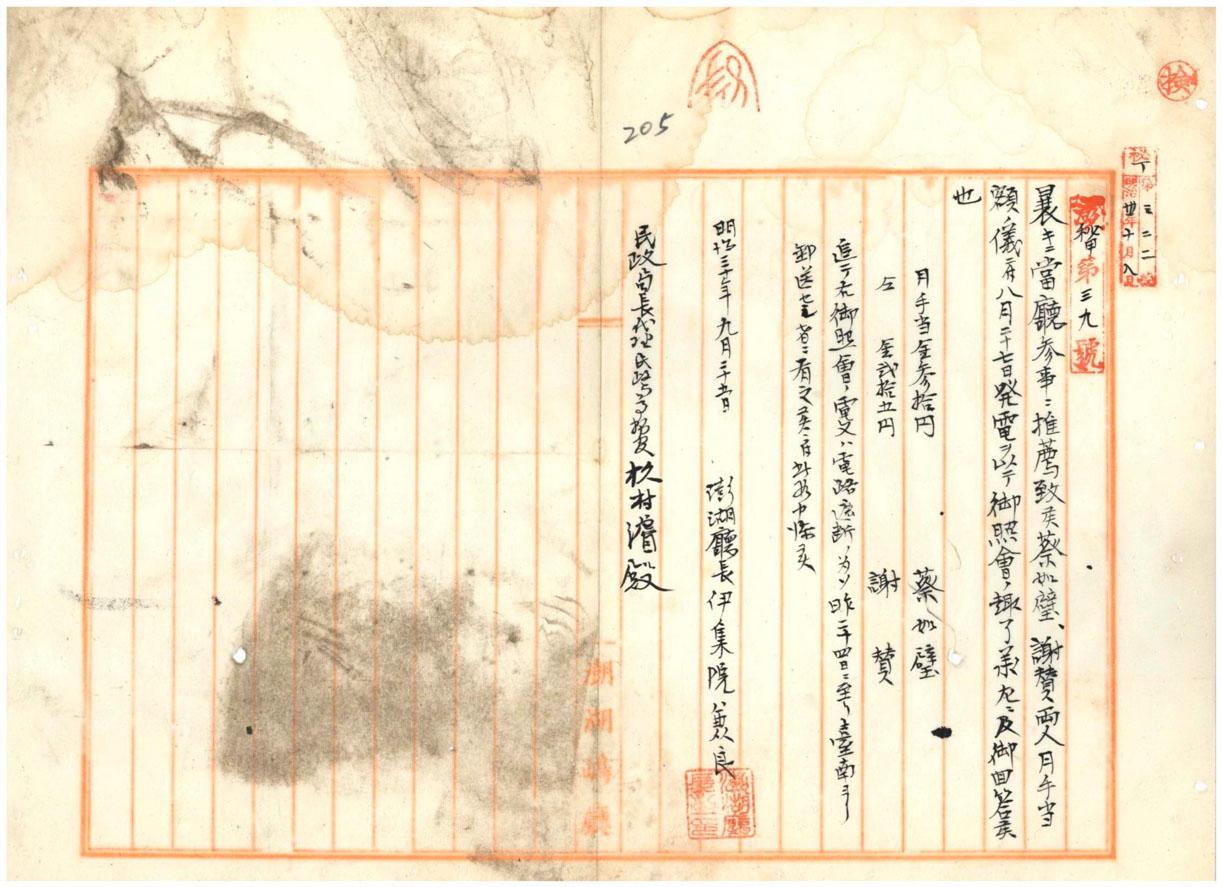 秘
検
205
秘甲第三九號
曩キニ當廳參事ニ推薦致候蔡如璧、謝贊両人月手当
額ノ儀ニ付八月二十七日発電ヲ以テ御照會ノ趣了承左ニ及御回答候
也
月手当金參拾円 蔡如璧
仝 金弐拾五円 謝贊
追テ右御照會ノ電文ハ電路遮断ノ為メ昨二十四日ニ至リ臺南ヨリ
郵送
明治三十年九月二十五日 澎湖廳長伊集院兼良
民政局長代理民政局事務官杉村濬殿
澎湖廳